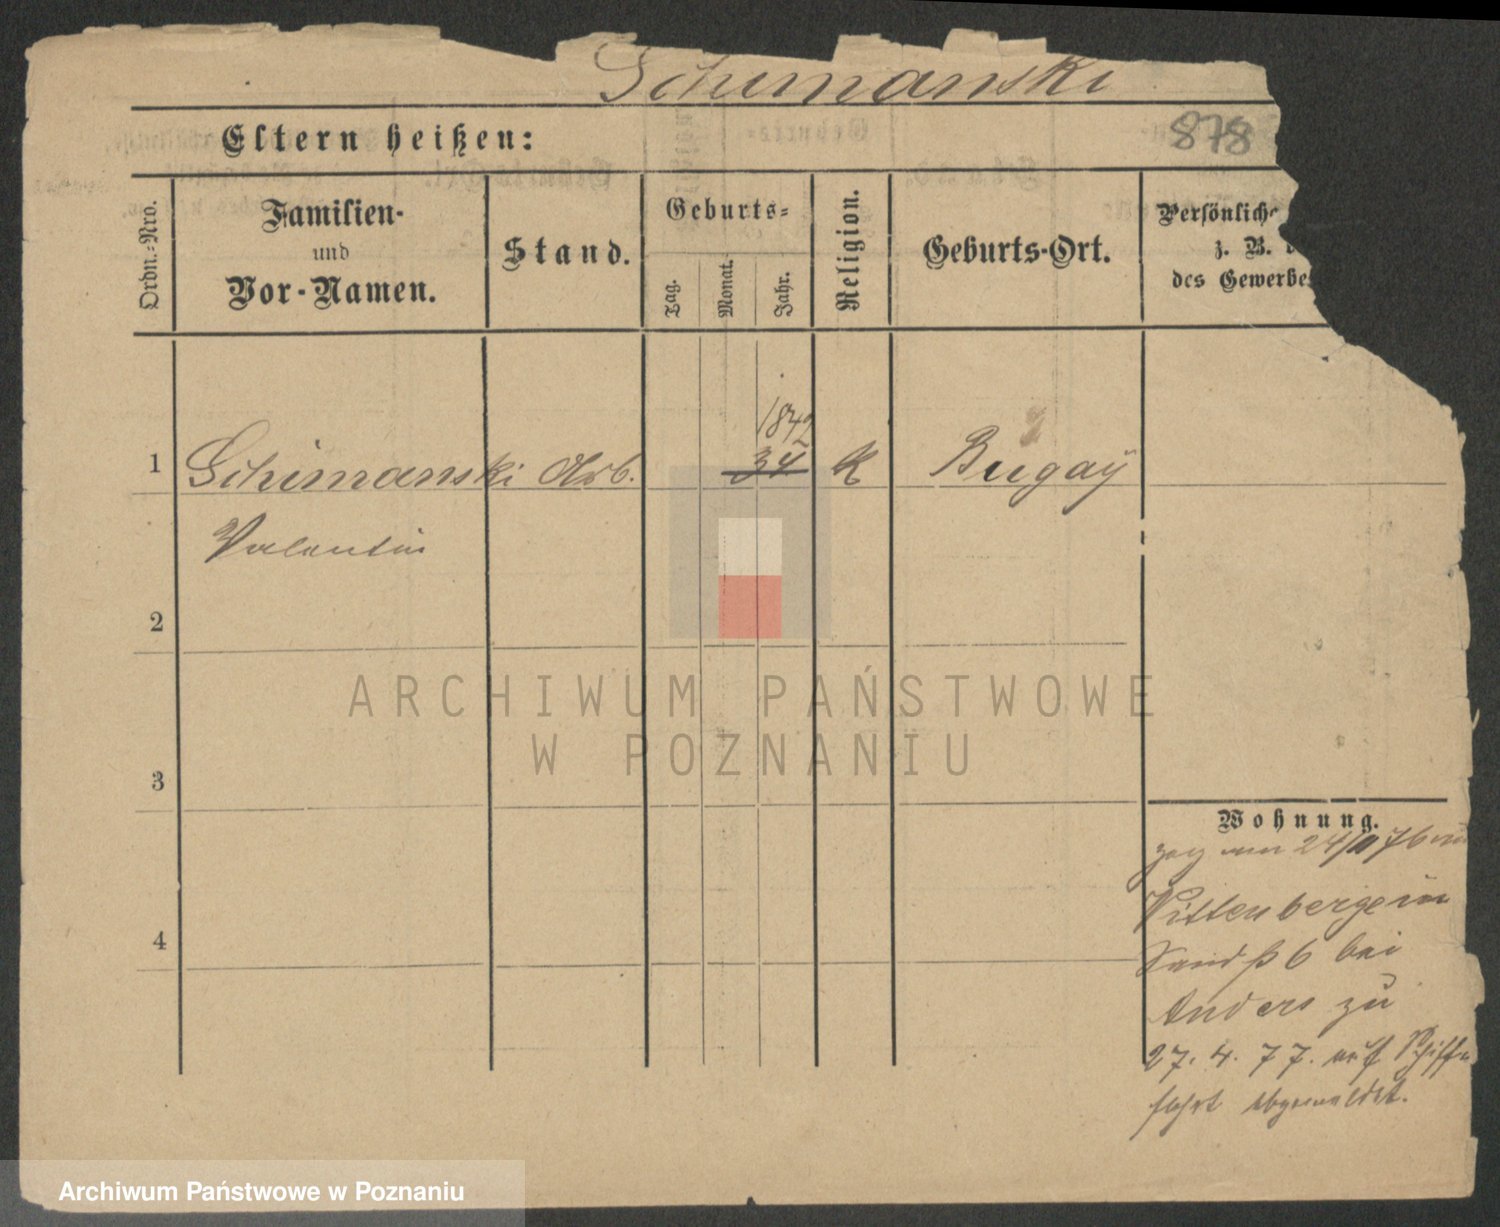 Schimanski
878
Eltern heißen:
Ordn.-Nro.
Familien-
und
Vor-Namen.
Stand.
Geburts-
Tag.
Monat.
Jahr.
Religion.
Geburts-Ort.
Persönliche
z. B.
des Gewerbe
1842
1 Schimanski Arb. 34 K Bugaÿ
Valentin
2
3
4
Wohnung.
zog am 24/ 76
Wittenberge in
Sandst 6 bei
Anders zu
27. 4. 77. auf Schiff
fahrt abgemeldet.
ARCHIWUM PAŃSTWOWE
W POZNANIU
Archiwum Państwowe w Poznaniu